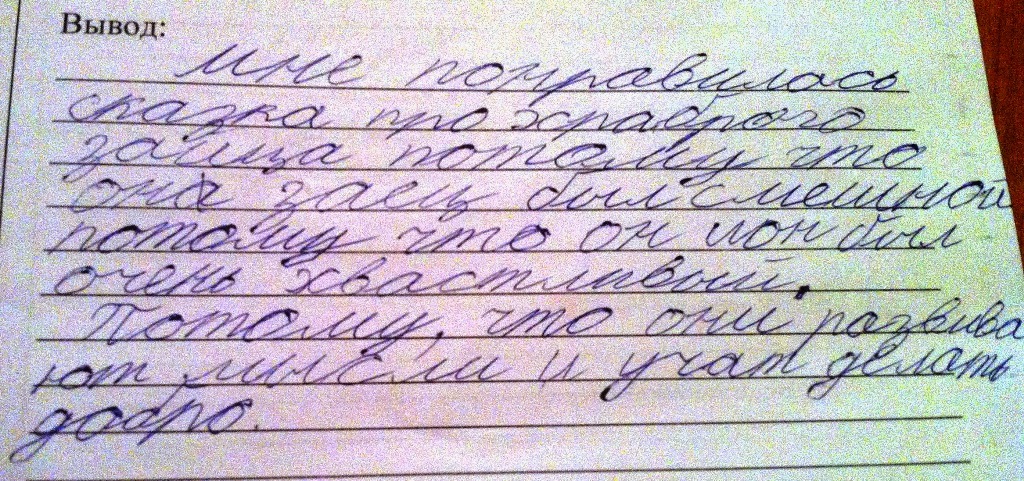 Вывод:
Мне понравилась
сказка про храброго
зайца потому что
она заец был смешной
потому что он и он был
очень хвастливый.
Потому, что они развива
ют мысли и учат делать
добро.